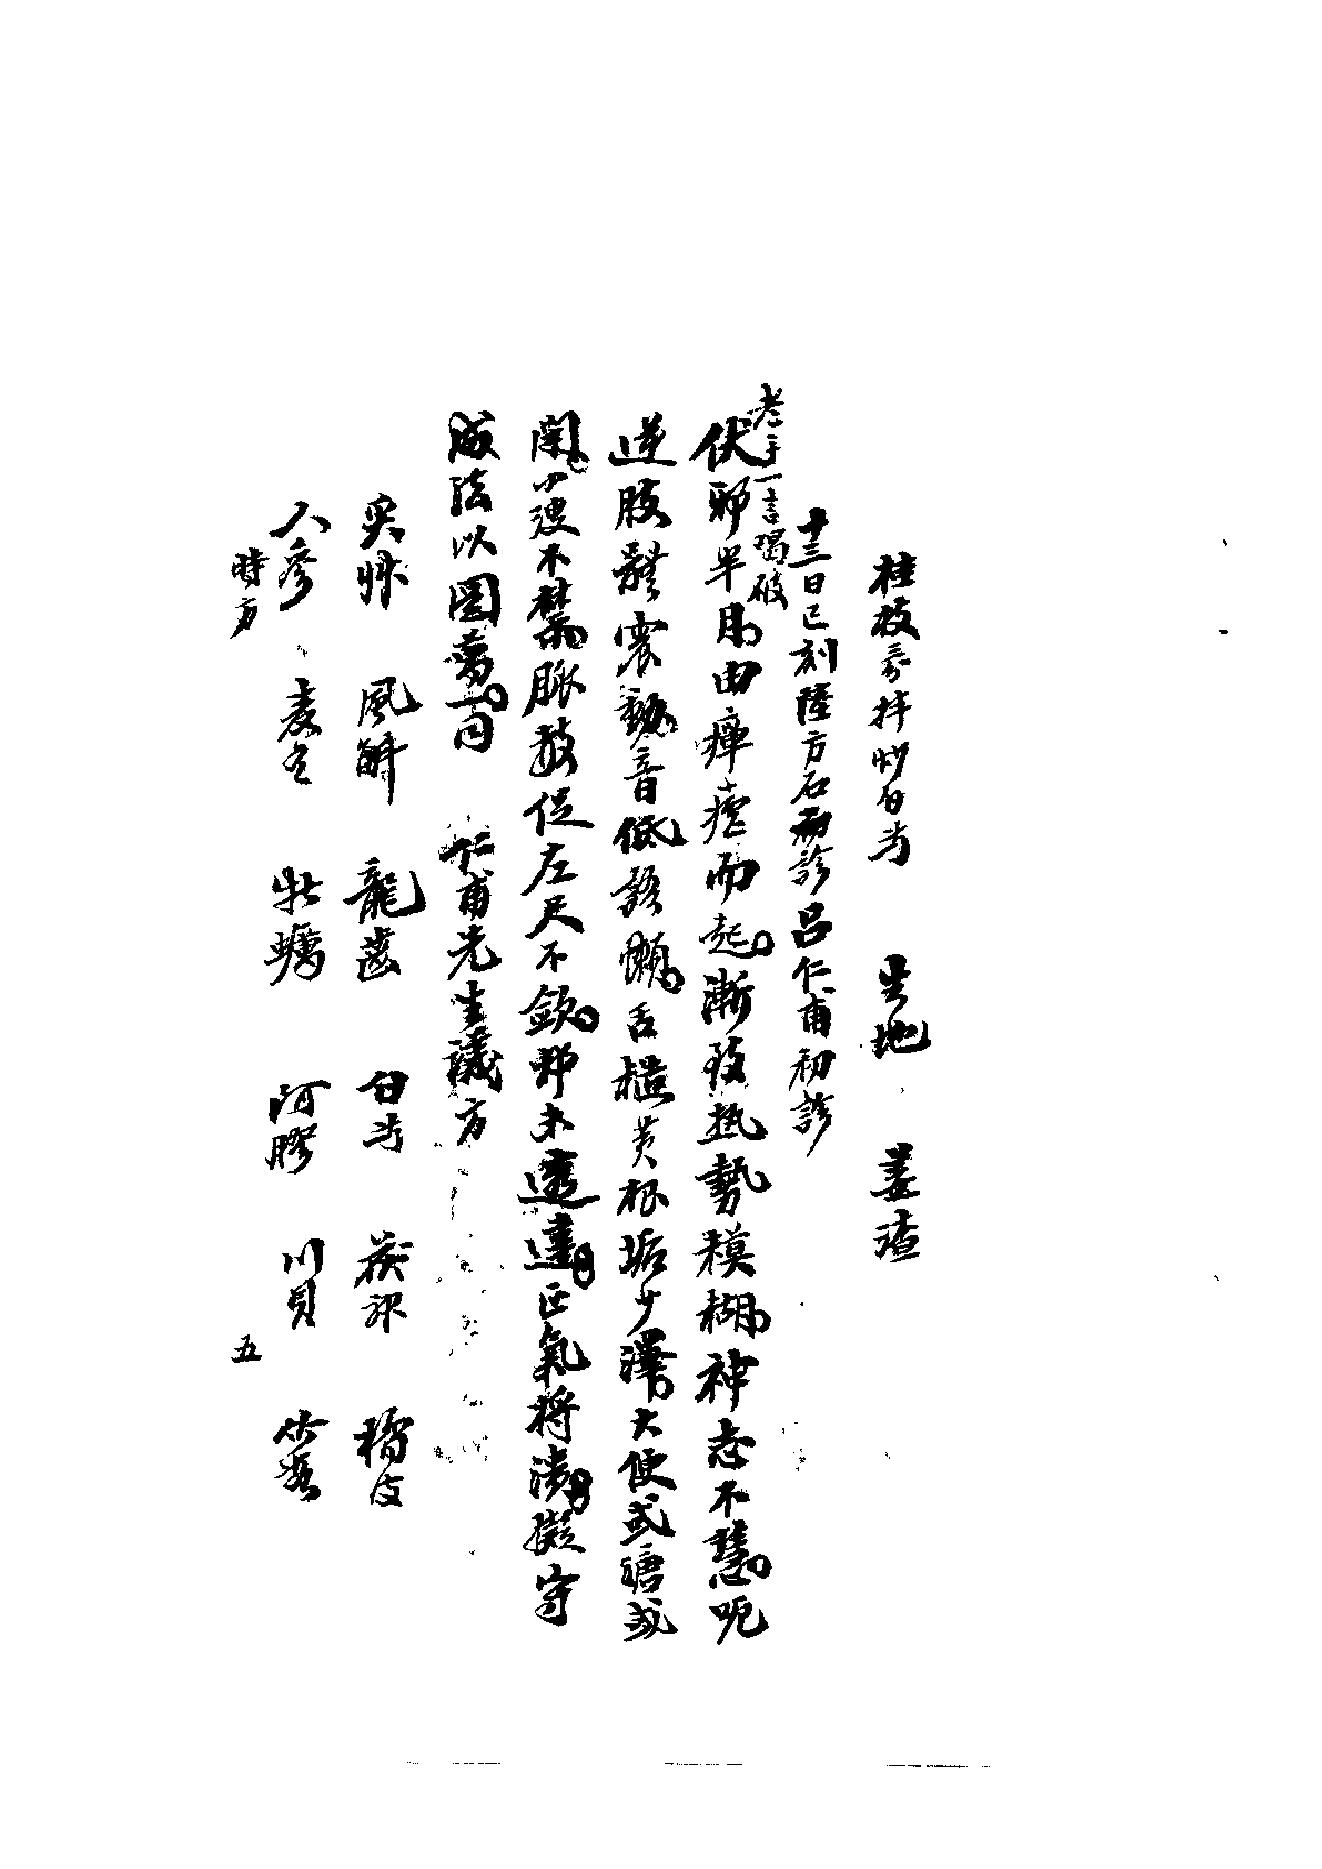 桂枝三分拌炒白芍　生地　姜渣
十三日巳刻陸方石初診呂仁甫初診
老手一言喝破
伏邪半月由瘅瘧而起漸致熱勢模糊神志不慧呃
逆肢體震動音低語懶舌糙黃根垢少澤大便或溏或
閉小溲不禁脈數促左尺不斂邪未透達正氣將潰擬守
成法以圖萬一同　仁甫先生議方
吳　風斛　龍齒　白芍　茯神　橘皮
人參　麥冬　牡蠣　阿膠　川貝
時方　五